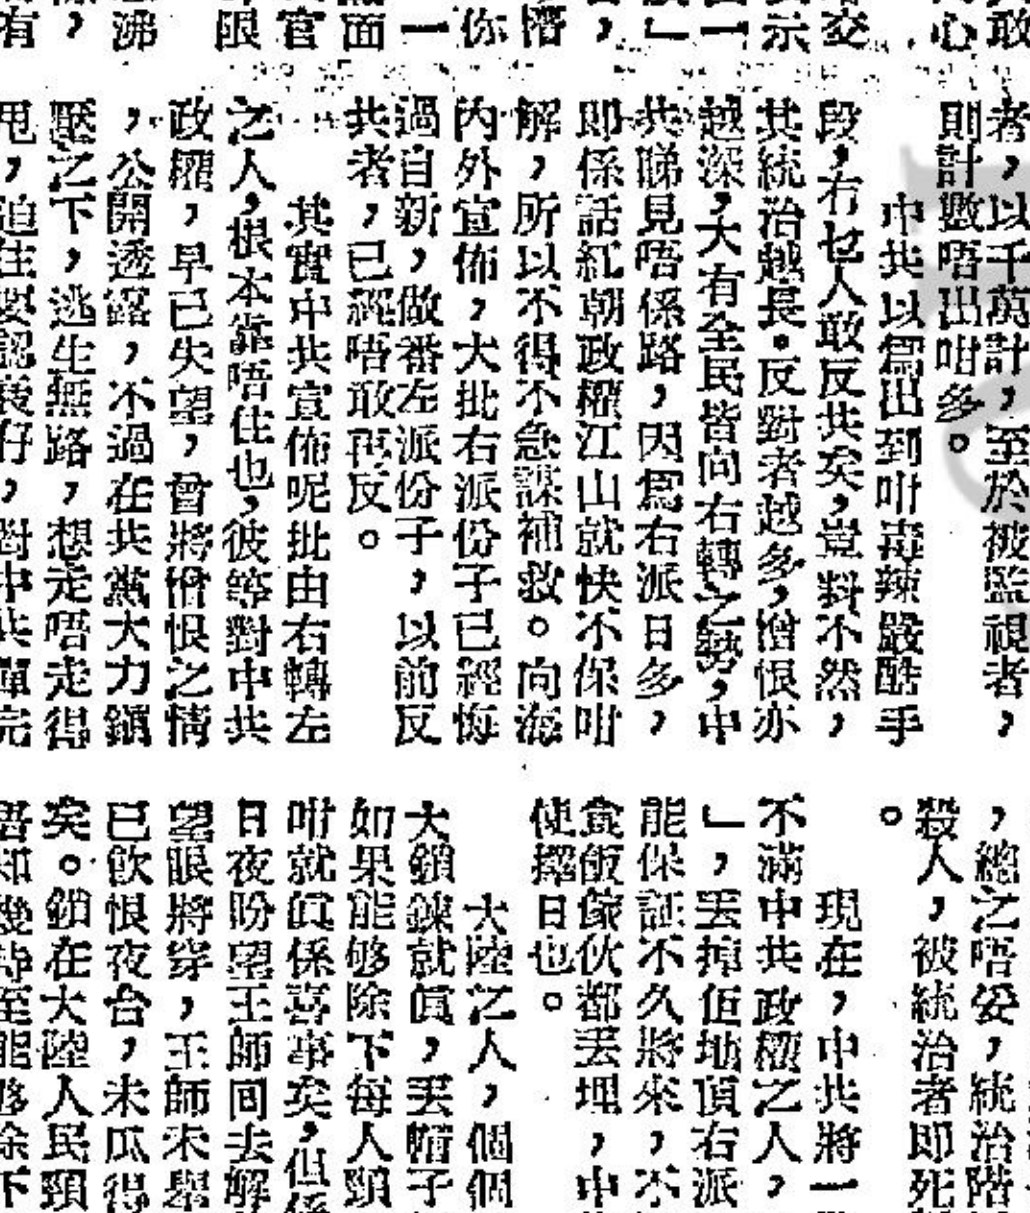 敢
心
交
示
一
」
，
懵
你
一
面
官
眼
沸
，
有
者，以千萬計，至於被監視者，
則計數唔出咁多。
中共以爲出到咁毒辣嚴酷手
段，冇乜人敢反共矣，豈料不然，
其統治越長。反對者越多，憎恨亦
越深，大有全民皆向右轉之勢，中
共睇見唔係路，因爲右派日多，
即係話紅朝政權江山就快不保咁
解，所以不得不急謀補救。向海
內外宣佈，大批右派份子已經悔
過自新，做番左派份子，以前反
共者，已經唔敢再反。
其實中共宣佈呢批由右轉左
之人，根本靠唔住也，彼等對中共
政權，早已失望，曾將憎恨之情
，公開透露，不過在共黨大力鎮
壓之下，逃生無路，想走唔走得
甩，迫住要認衰仔，對中共彈完
，總之唔妥，統治階
殺人，被統治者即死
。
現在，中共將一
不滿中共政權之人，
」，丟掉佢地頂右派
能保証不久將來，不
食飯傢伙都丟埋，中
使擇日也。
大陸之人，個個
大鎖鍊就眞，丟帽子
如果能够除下每人頸
咁就眞係喜事矣，但係
日夜盼望王師回去解
望眼將穿，王師未舉
已飲恨夜台，未瓜得
矣。鎖在大陸人民頸
唔知幾時至能够除下